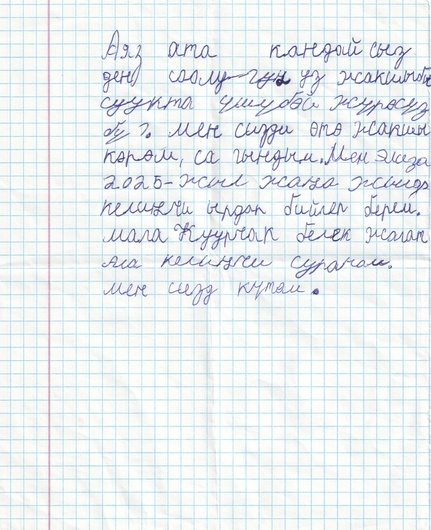 Аяз ата кандайсыз
ден соолугунуз жакшыбы
суукта үшүбөй жүрөсүз
бү? Мен сизди өтө жакшы
көрөм, сагындым. Мен Элиза
2025-жыл жаңа жылда
келиңчи ырдап бийлеп берем.
мага Куурчак белек жагат
ала келиңчи суранам.
Мен сизд күтөм.